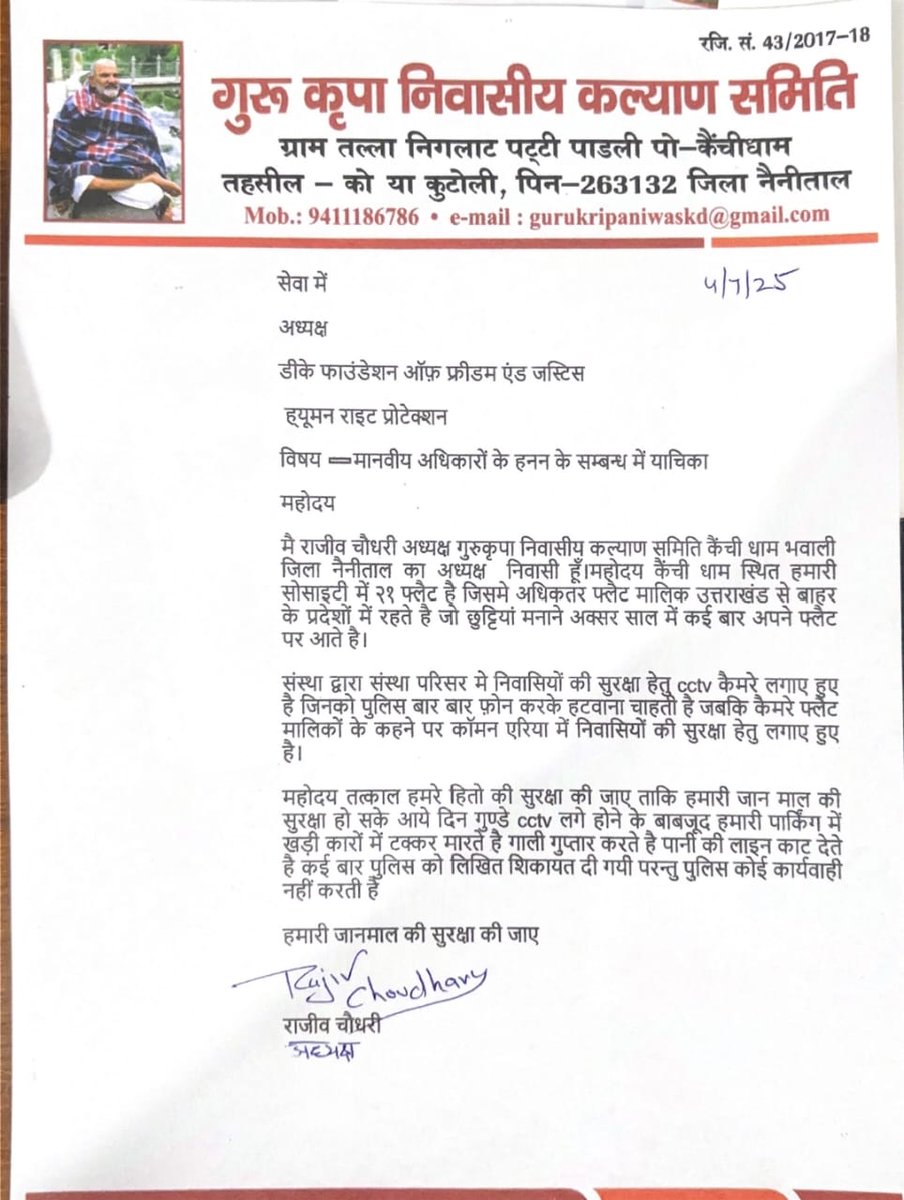 रजि. सं. 43/2017-18
गुरू कृपा निवासीय कल्याण समिति
ग्राम तल्ला निगलाट पट्टी पाडली पो-कैंचीधाम
तहसील - को या कुटोली, पिन-263132 जिला नैनीताल
Mob.: 9411186786 • e-mail : gurukripaniwaskd@gmail.com
सेवा में
4/7/25
अध्यक्ष
डीके फाउंडेशन ऑफ़ फ्रीडम एंड जस्टिस
ह्यूमन राइट प्रोटेक्शन
विषय —मानवीय अधिकारों के हनन के सम्बन्ध में याचिका
महोदय
मै राजीव चौधरी अध्यक्ष गुरुकृपा निवासीय कल्याण समिति कैंची धाम भवाली
जिला नैनीताल का अध्यक्ष निवासी हूँ।महोदय कैंची धाम स्थित हमारी
सोसाइटी में २१ फ्लैट है जिसमे अधिकतर फ्लैट मालिक उत्तराखंड से बाहर
के प्रदेशों में रहते है जो छुट्टियां मनाने अक्सर साल में कई बार अपने फ्लैट
पर आते है।
संस्था द्वारा संस्था परिसर मे निवासियों की सुरक्षा हेतु cctv कैमरे लगाए हुए
है जिनको पुलिस बार बार फ़ोन करके हटवाना चाहती है जबकि कैमरे फ्लैट
मालिकों के कहने पर कॉमन एरिया में निवासियों की सुरक्षा हेतु लगाए हुए
है।
महोदय तत्काल हमरे हितो की सुरक्षा की जाए ताकि हमारी जान माल की
सुरक्षा हो सके आये दिन गुण्डे cctv लगे होने के बाबजूद हमारी पार्किंग में
खड़ी कारों में टक्कर मारते है गाली गुप्तार करते है पानी की लाइन काट देते
है कई बार पुलिस को लिखित शिकायत दी गयी परन्तु पुलिस कोई कार्यवाही
नहीं करती है
हमारी जानमाल की सुरक्षा की जाए
Rajiv Choudhary
राजीव चौधरी
अध्यक्ष